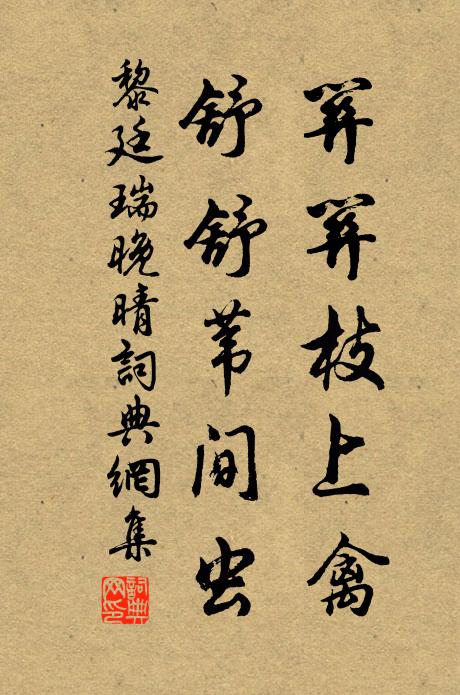 关关枝上禽
舒舒苇间虫
黎廷瑞晚晴詞典網集
詞典网印